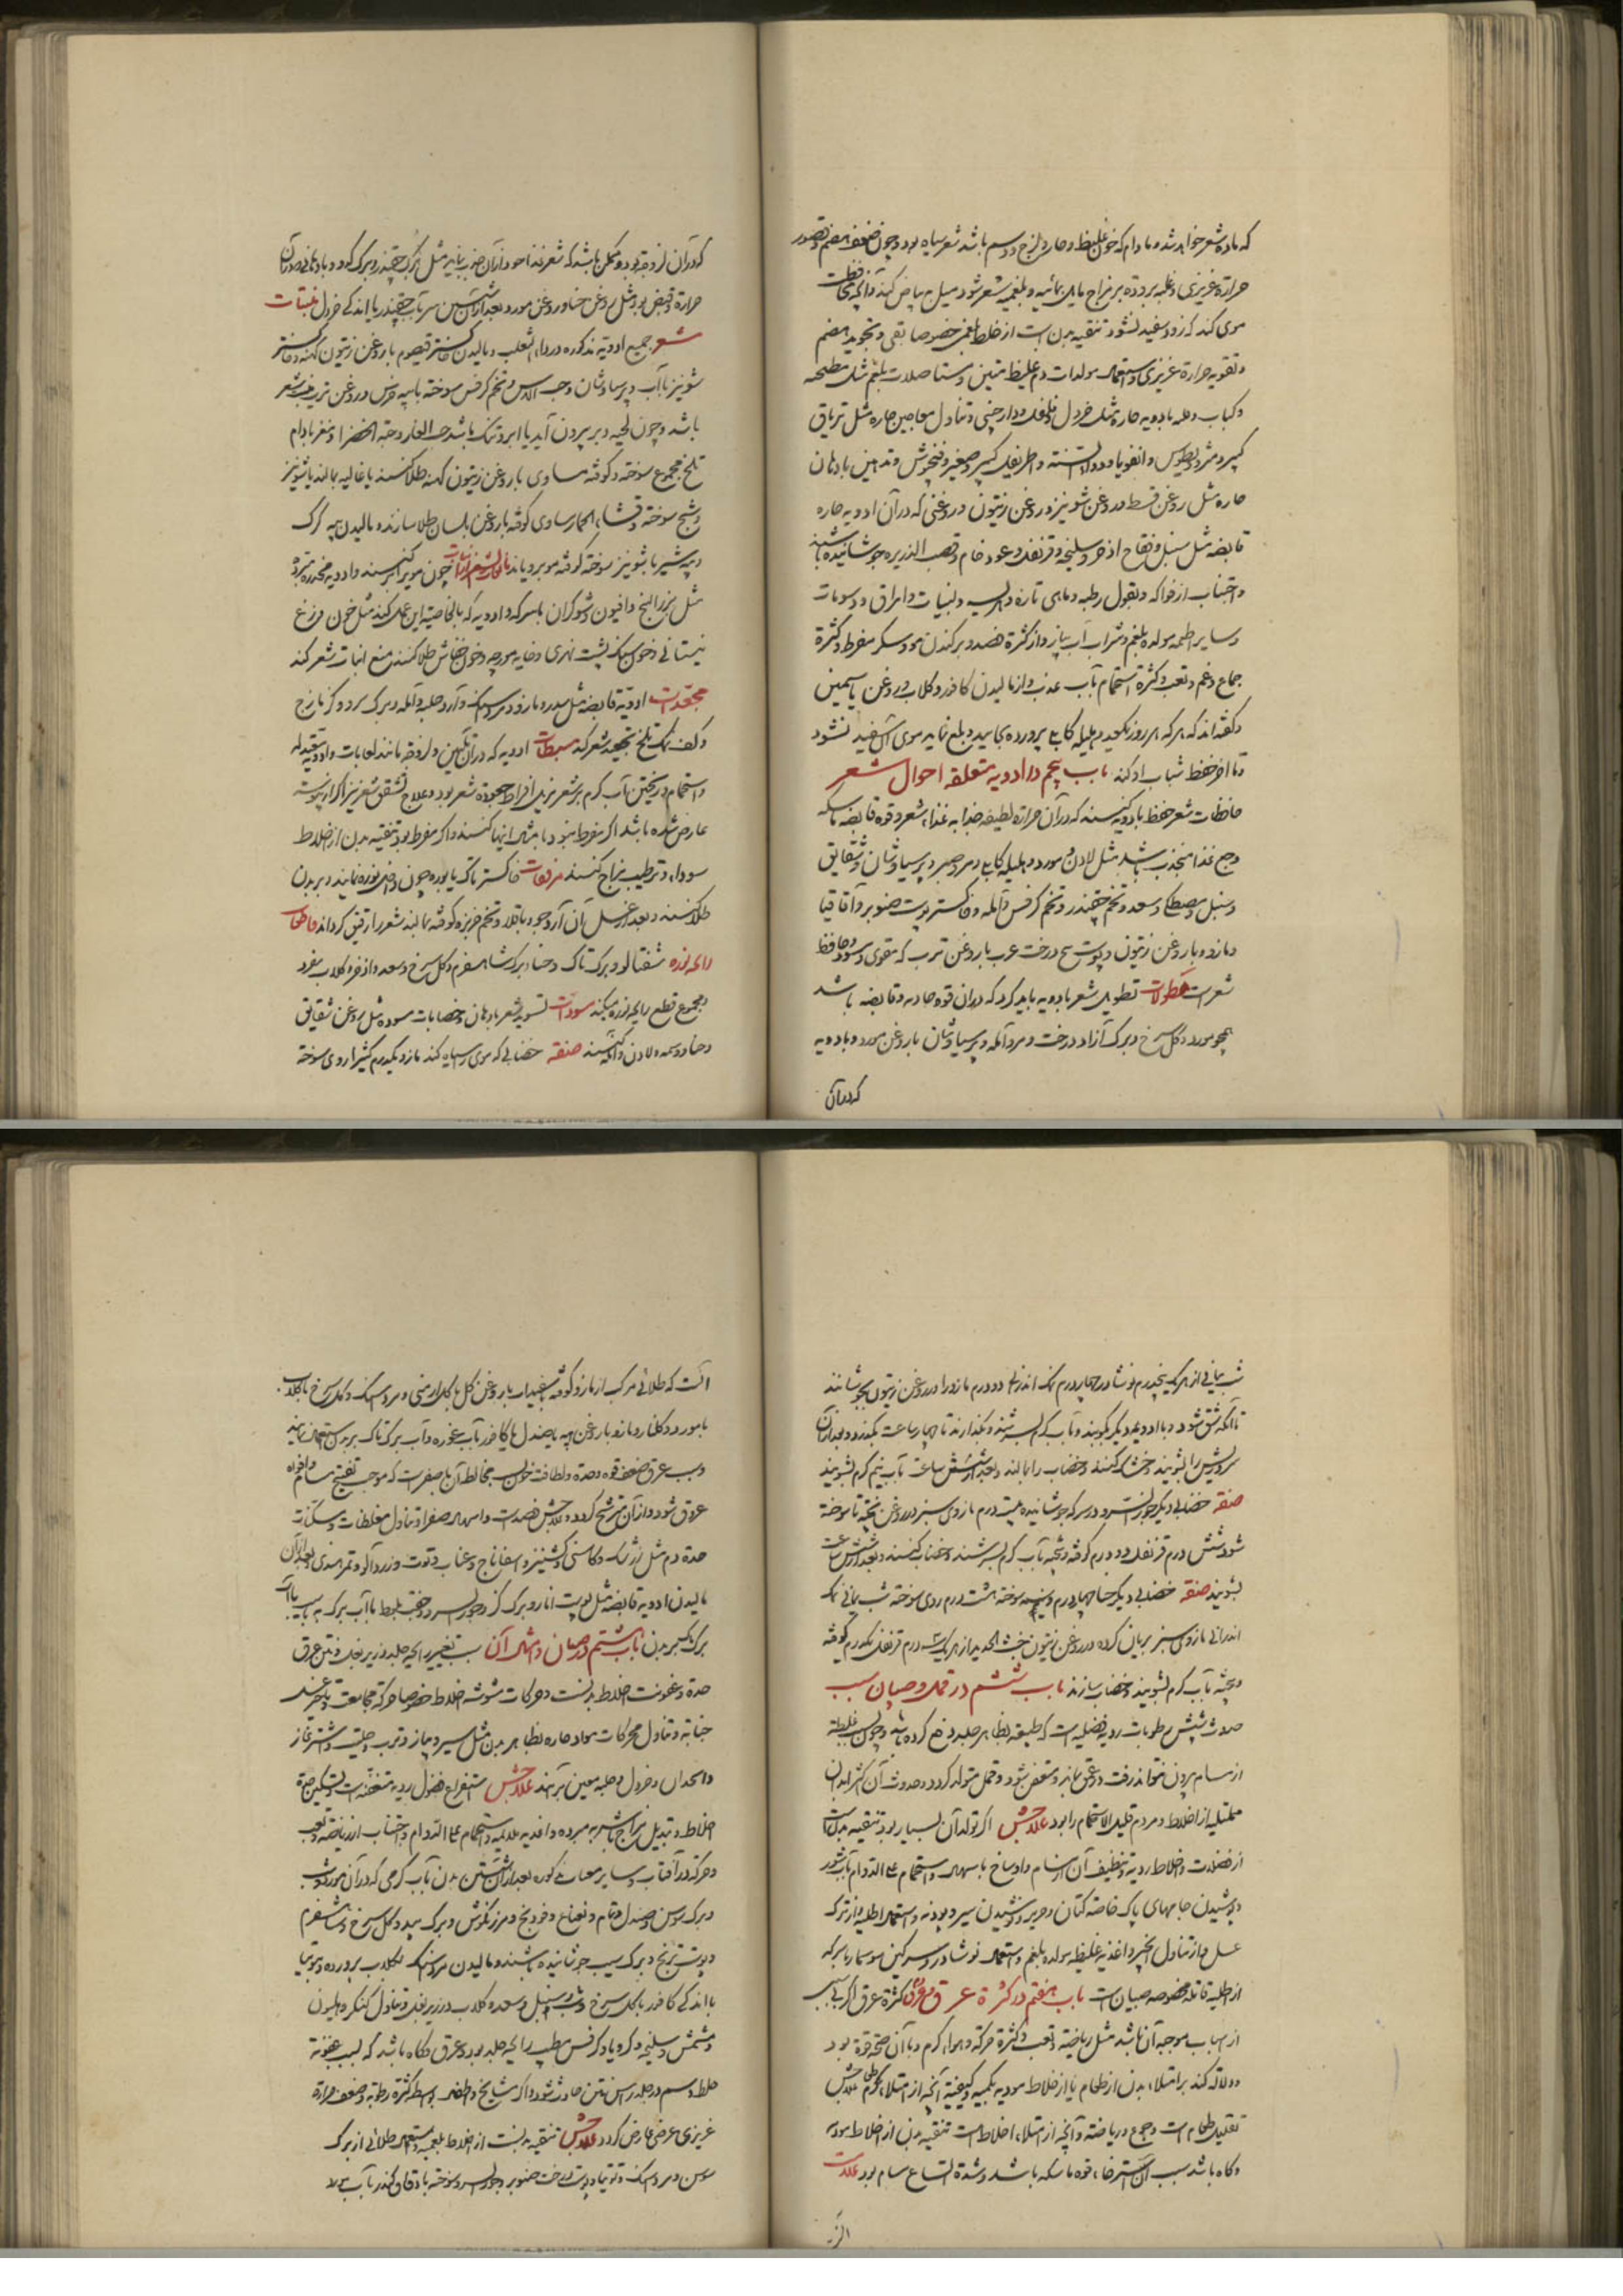 که ماده شعر خواهد شد و مادام که خون غلیظ و حار و لزج و دسم باشد شعر سیاه بود و چون ضعف هضم و قصور
حرارة غریزی و غلبه برودة بر مزاج مایل بمائیه و بلغمیه شعر شود میل ببیاض کند و آنچه محافظت
موی کند که زود سفید نشود تنقیه بدن است از خلط بلغمی خصوصا بقی و تجوید هضم
و تقویه حرارة غریزی و استعمال مولدات دم غلیظ متین و مستاصلات بلغم مثل مطنجه
و کباب و قلیه بادویه حاره مثل خردل و فلفل و دارچینی و تناول معاجین حاره مثل تریاق
کبیر و مثرودیطوس و انقردیا و دواء السنه و اطریفل کبیر و صغیر و فنجنوش و تدهین بادهان
حاره مثل روغن قسط و روغن شونیز و روغن زیتون و روغنی که در آن ادویه حاره
قابضه مثل سنبل و فقاح اذخر و سلیخه و قرنفل و عود خام و قصب الذریره جوشانیده باشند
و اجتناب از فواکه و بقول رطبه و ماهی تازه و لبنیات و امراق و دسومات
و سایر اطعمه مولده بلغم و شراب و از کثرة فصد و برکندن مو و سکر مفرط و کثرة
جماع و غم و تعب و کثرة استحمام بآب عذب و از مالیدن کافور و گلاب و روغن یاسمین
و گفته‌اند که هر که هر روز یکعدد هلیله کابلی پرورده بخاید و بلع نماید موی آنکس سفید نشود
و تا آخر حفظ شباب او کند باب پنجم در ادویه متعلقه احوال شعر
حافظات شعر حفظ بادویه کنند که در آن حرارة لطیفه جذابه غذاء شعر و قوه قابضه ماسکه
و جمع غذا منجذب باشد مثل لادن و مورد و هلیله کابلی و مر و صبر و پرسیاوشان و شقایق
و سنبل و مصطکی و سعد و تخم چقندر و تخم کرفس و آمله و خاکستر پوست صنوبر و آقاقیا
و مازو و با روغن زیتون و پوست بیخ درخت عرب با روغن ترب که مقوی و مسود و حافظ
شعر است نطولات تطویل شعر بادویه باید کرد که در آن قوه جاذبه و قابضه باشد
همچو مورد و گل سرخ و برک آزاد درخت و مر و آمله و پرسیاوشان با روغن مورد و بادویه
که در آن
که در آن لزوجة بود و ممکن باشد که شعر غذاء خود از آن جذب نماید مثل برک چقندر و برک کدو و بادهانی که در آن
حرارة و قبض بود مثل روغن حنا و روغن مورد و بعد از شستن سر بآب چقندر با اندکی خردل منبتات
شعر جمیع ادویه مذکوره در داء الثعلب و مالیدن خاکستر قیصوم با روغن زیتون کهنه و خاکستر
شونیز بآب و پرسیاوشان و حب الآس و تخم کرفس سوخته با پیه خرس و روغن ترب منبت شعر
باشد و چون لحیه دیر بیرون آید یا ابرو تنک باشد حب الغار و حبة الخضرا و مغز بادام
تلخ مجموع سوخته و کوفته مساوی با روغن زیتون کهنه طلا کنند یا غالیه بمالند یا شونیز
و شیح سوخته و قثاء الحمار مساوی کوفته با روغن بلسان طلا سازند و مالیدن پیه گرگ
و پیه شیر با شونیز سوخته کوفته مو برویاند چون مو بر کنند و ادویه مخدره مبرده
مثل بزر البنج و افیون و شوکران بسرکه و ادویه که بالخاصیه این عمل کند مثل خون وزغ
نیستانی و خون سنگ پشت نهری و خایه مورچه و خون خفاش طلا کنند منع انبات شعر کند
مجعدات ادویه قابضه مثل سدر و مازو و مرداسنک و آرد حلبه و آمله و برک سرو و گزمازج
و کف نمک تلخ تجعید شعر کند مبسطات ادویه که در آن تلیین و لزوجة مانند لعابات و ادویه
و استحمام و ریختن آب گرم بر شعر مزیل افراط جعودة شعر بود و علاج تشقق شعر نیز اگر از یبوست
عارض شده باشد اگر مفرط نبود بامثال اینها کنند و اگر مفرط بود تنقیه بدن از اخلاط
سوداء و ترطیب مزاج کنند مرققات خاکستر تاک یا بوره چون داخل نوره نمایند و بر بدن
طلا کنند و بعد از غسل آن آرد جو و باقلا و تخم خربزه کوفته بمالند شعر را رقیق گرداند قاطعات
رایحه نوره شفتالو و برک تاک و حنا و برک شاهسفرم و گل سرخ و سعد و اذخر و گلاب مفرد
و مجموع قطع رایحه نوره میکند مسودات تسوید شعر بادهان و خضابات مسوده مثل روغن شقایق
و حنا و وسمه و لادن و آمله کنند صفة خضابی که موی را سیاه کند مازو یکدرم کثیرا روی سوخته
شب یمانی از هر یک پنجدرم نوشادر چهار درم نمک اندرانی دو درم مازو را در روغن زیتون بجوشانند
تا آنکه شق شود و با ادویه دیگر بکوبند و بآب گرم بسرشند و بگذارند تا چهار ساعت بگذرد و بعد از آن
سر و ریش را بشویند و خشک کنند و خضاب را بمالند و بعد از شش ساعت بآب نیم گرم بشویند
صفة خضابی دیگر جوز السرو در سرکه جوشانیده بیست درم مازوی سبز در روغن پخته تا سوخته
شود شش درم قرنفل دو درم کوفته و بیخته بآب گرم بسرشند و خضاب کنند و بعد از شش ساعت
بشویند صفة خضابی دیگر حنا چهار درم وسمه سوخته هشت درم روی سوخته شب یمانی نمک
اندرانی مازوی سبز بریان کرده در روغن زیتون خبث الحدید از هر یک سه درم قرنفل یکدرم کوفته
و بیخته بآب گرم بشویند و خضاب سازند باب ششم در قمل و صیبان سبب
حدوث شپش رطوبات ردیه فضلیه است که طبیعة بظاهر جلد دفع کرده باشد و چون بسبب غلظة
از مسام بیرون نتواند رفت در عمق بماند و متعفن شود و قمل متولد گردد و حدوث آن اکثر ابدان
ممتلیه از اخلاط و مردم قلیل الاستحمام را بود علاجش اگر تولد آن بسیار بود تنقیه بدنست
از فضلات و اخلاط ردیه و تنظیف آن از مسام و اوساخ باسهال و استحمام علی الدوام بآب شور
و پوشیدن جامهای پاک خاصه کتان و حریر و نوشیدن سیر و پودنه و استعمال اطلیه و از ترک
غسل و از تناول انجیر و اغذیه غلیظه مولده بلغم و استعمال نوشادر و سرگین سوسمار بسرکه
از اطلیه قاتله مخصوصه صیبان است باب هفتم در کثرة عرق و عرق کثرة عرق اگر بی سبب
از اسباب موجبه آن باشد مثل ریاضة و تعب و کثرة حرکة و هواء گرم و با آن صحة قوة بود
دلالة کند بر امتلاء بدن از طعام یا از اخلاط موذیه بکمیه و کیفیة آنچه از امتلاء طعام علاجش
تقلیل طعام است و جوع و ریاضة و آنچه از امتلاء اخلاط است تنقیه بدن از اخلاط موذیه
و گاه باشد سبب آن استرخاء قوه ماسکه باشد و شدة اتساع مسام بود علاجش
آنست که طلائی مرکب از مازو کوفته بسفیداب با روغن گل با گل ارمنی و مرداسنک و گل سرخ با گلاب
یا مورد و گلنار و مازو با روغن به یا صندل یا کافور بآب غوره و آب برک تاک بر بدن استعمال نمایند
و سبب عرق ضعف قوه و حدة و لطافت خون بسبب مخالطه آن با صفراست که موجب تفتیح مسام و افواه
عروق شود و از آن مترشح گردد علاجش فصدست و اسهال صفرا و تناول مغلظات و مسکنات
حدة دم مثل زرشک و کاسنی و گشنیز و اسفاناج و عناب و توت و زردآلو و تمر هندی و بعد از آن
مالیدن ادویه قابضه مثل پوست انار و برک گز و جوز السرو و جفت بلوط با آب برک به یا سیب یا آب
برک گل بر بدن باب هشتم در صنان و امثال آن سبب تغییر رایحه جلد و زیر بغل و نتن عرق
حدة و عفونت اخلاط بدنست و حرکات مشوشه اخلاط خصوصا حرکة مجامعت و تاخیر غسل
جنابة و تناول محرکات مواد حاره بظاهر بدن مثل سیر و پیاز و ترب و حلتیت و اشترغاز
و انجدان و خردل و حلبه معین بر آنند علاجش استفراغ فضول ردیه متعفنه است و تسکین حدة
اخلاط و تبدیل مزاج باشربه مبرده و اغذیه ملایمه و استحمام علی الدوام و اجتناب از ریاضة و تعب
و حرکة در آفتاب و سایر معینات مذکوره بعد از آن شستن بدن بآب گرمی که در آن مورد و شب
و برک سوسن و صندل و نمام و نعناع و فودنج و مرزنکوش و برک بید و گل سرخ و شاهسفرم
و پوست ترنج و برک سیب جوشانیده باشند و مالیدن مرداسنک بگلاب پرورده و توتیا
با اندکی کافور با گل سرخ و شب و سنبل و سعد و گلاب در زیر بغل و تناول کنکر و هلیون
و مشمش و سلیخه و کرویا و کرفس مطیب رایحه جلد بود و عرق و گاه باشد که بسبب عفونة
خلط دسم در جلد راس نتن حادث شود و اگر مشایخ و اطفال بواسطه کثرة رطوبة و ضعف حرارة
غریزی عرضی عارض گردد علاجش تنقیه بدنست از اخلاط بلغمیه و استعمال طلائی از برک
سوسن و مرداسنک و توتیا و پوست درخت صنوبر و جوز السرو سوخته با دقاق کندر بآب